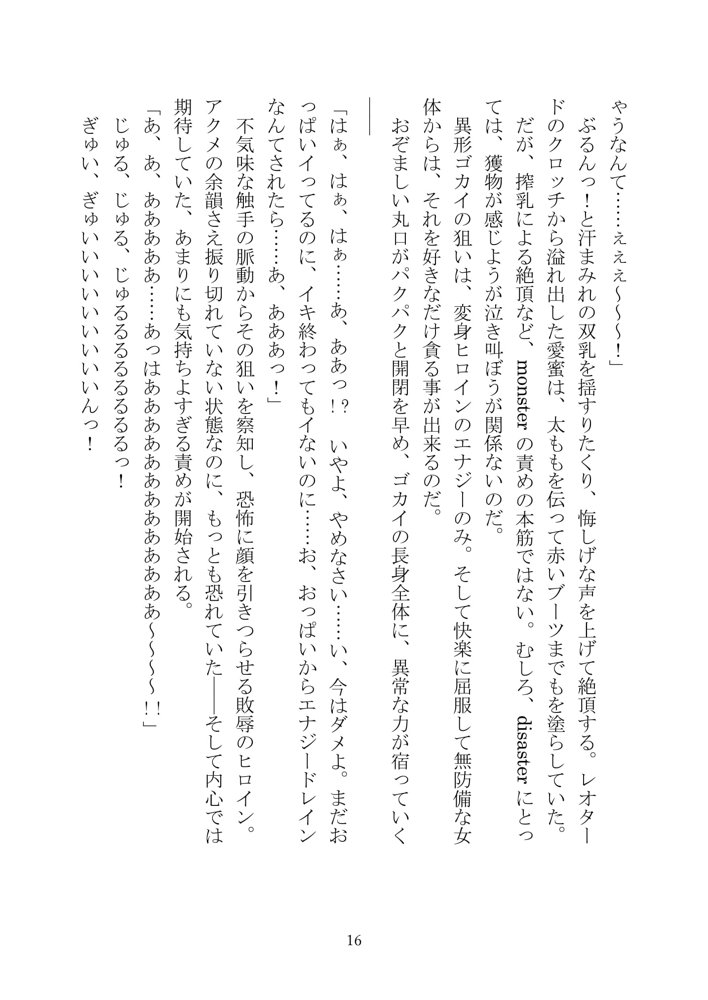 ゃうなんて……ぇぇぇ～～～！」
　ぶるんっ！と汗まみれの双乳を揺すりたくり、悔しげな声を上げて絶頂する。レオター
ドのクロッチから溢れ出した愛蜜は、太ももを伝って赤いブーツまでもを塗らしていた。
　だが、搾乳による絶頂など、monster の責めの本筋ではない。むしろ、disaster にとっ
ては、獲物が感じようが泣き叫ぼうが関係ないのだ。
　異形ゴカイの狙いは、変身ヒロインのエナジーのみ。そして快楽に屈服して無防備な女
体からは、それを好きなだけ貪る事が出来るのだ。
　おぞましい丸口がパクパクと開閉を早め、ゴカイの長身全体に、異常な力が宿っていく
――
「はぁ、はぁ、はぁ……あ、ああっ!?　いやよ、やめなさい……い、今はダメよ。まだお
っぱいイってるのに、イキ終わってもイないのに……お、おっぱいからエナジードレイン
なんてされたら……あ、あああっ！」
　不気味な触手の脈動からその狙いを察知し、恐怖に顔を引きつらせる敗辱のヒロイン。
アクメの余韻さえ振り切れていない状態なのに、もっとも恐れていた――そして内心では
期待していた、あまりにも気持ちよすぎる責めが開始される。
「あ、あ、あああああ……あっはああああああああああああ～～～～!!」
　じゅる、じゅる、じゅるるるるるるるるっ！
　ぎゅい、ぎゅいいいいいいいいいんっ！
16